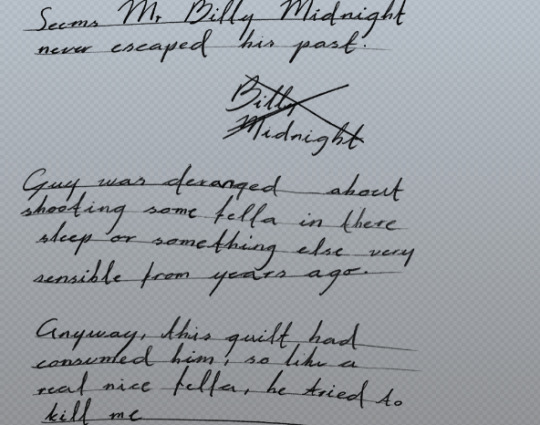 Seems Mr Billy Midnight
never escaped his past.
Billy
Midnight
Guy was deranged about
shooting some fella in there
sleep or something else very
sensible from years ago.
Anyway, this guilt had
consumed him, so like a
real nice fella, he tried to
kill me